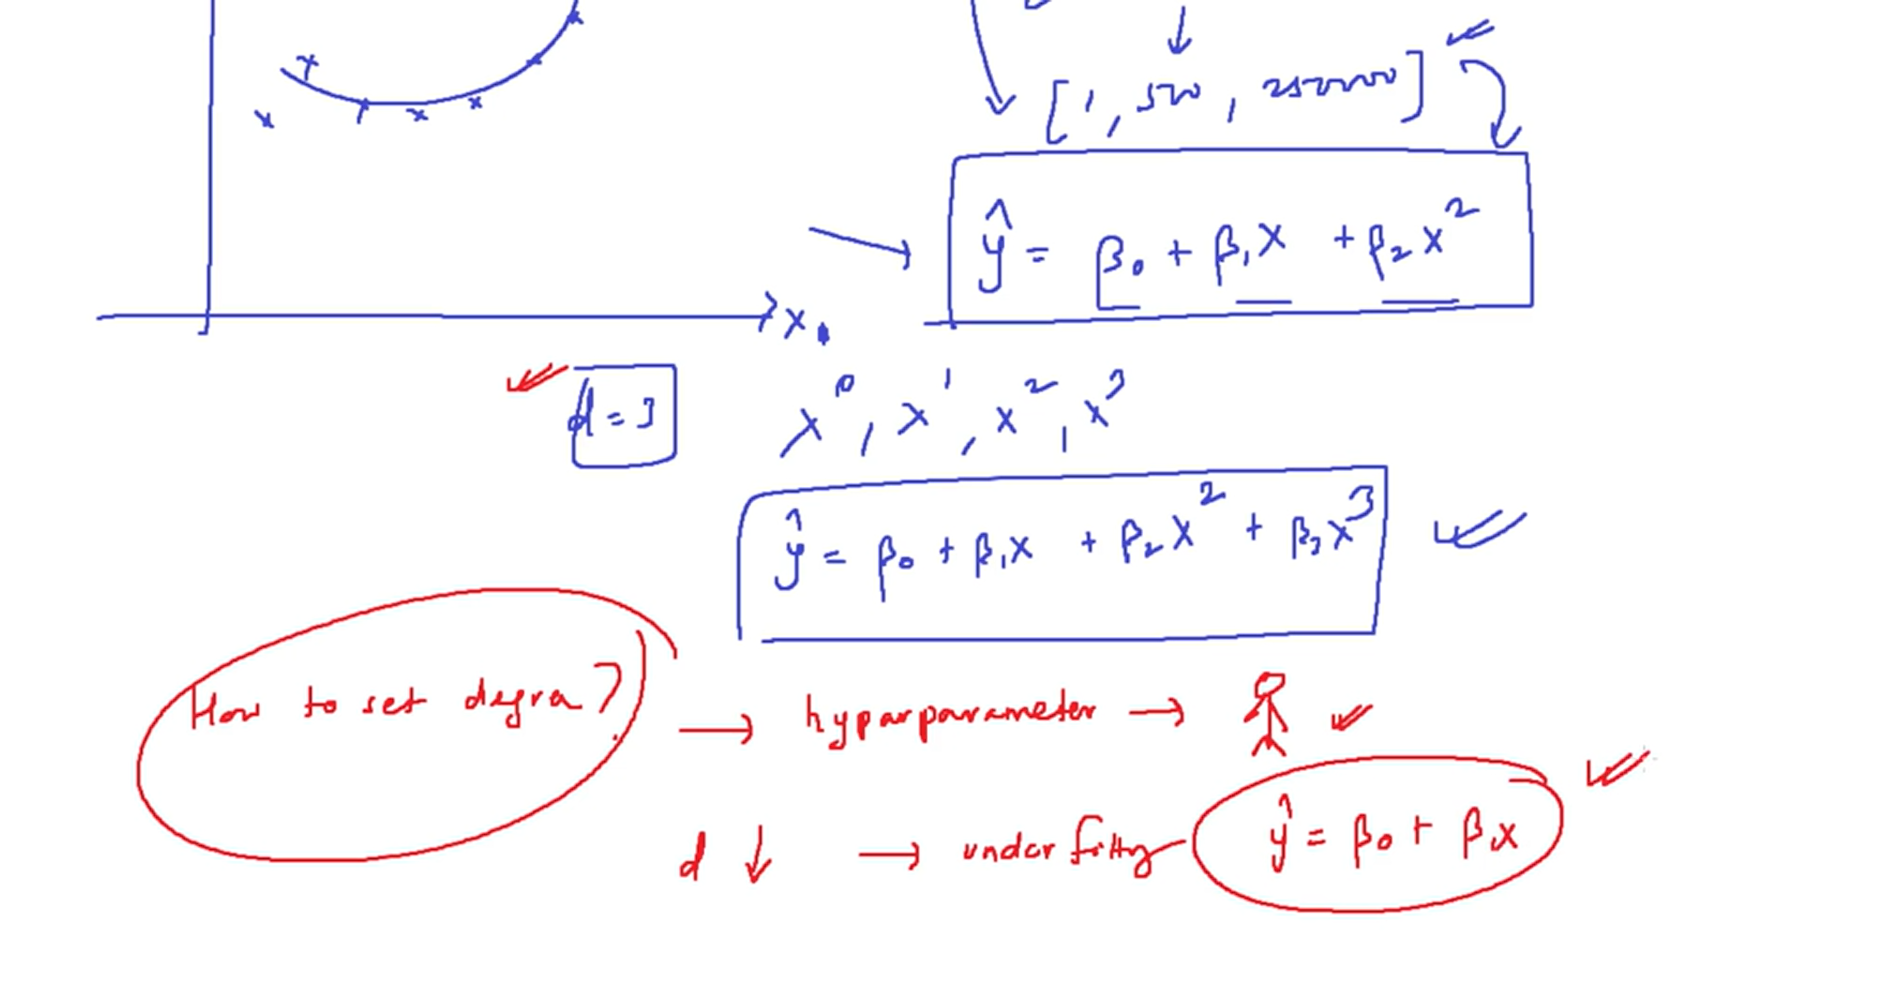 [1, 500, 250000]
ŷ = β₀ + β₁x + β₂x²
x₁
d = 3
x⁰, x¹, x², x³
ŷ = β₀ + β₁x + β₂x² + β₃x³
How to set degree?
→ hyparparameter →
d ↓ → underfitting
ŷ = β₀ + β₁x